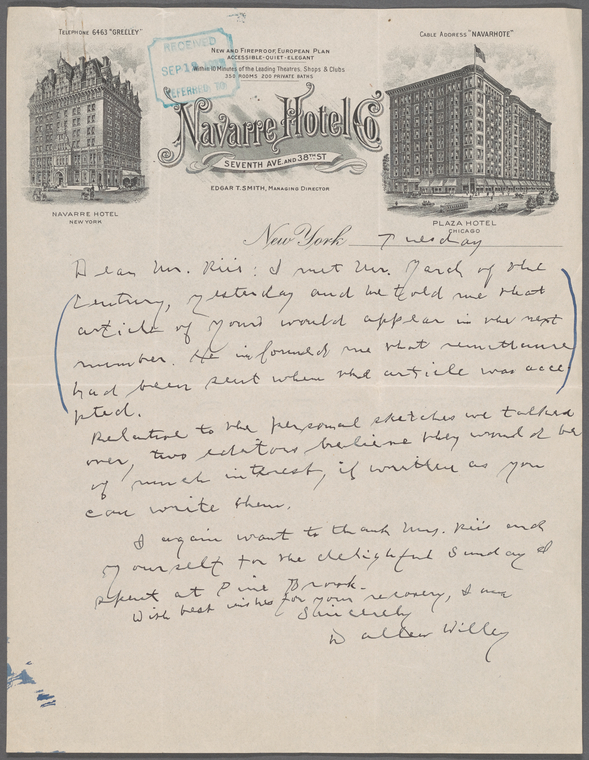 TELEPHONE 6463 "GREELEY"
CABLE ADDRESS "NAVARHOTE"
RECEIVED
SEP
NEW AND FIREPROOF, EUROPEAN PLAN
ACCESSIBLE-QUIET-ELEGANT
Within 10 Minutes of the Leading Theatres, Shops & Clubs
350 ROOMS 200 PRIVATE BATHS
Navarre Hotel Co.
SEVENTH AVE. AND 38TH ST
EDGAR T. SMITH, MANAGING DIRECTOR
NAVARRE HOTEL
NEW YORK
PLAZA HOTEL
CHICAGO
New York Tuesday
Dear Mr. Riis: I met Mr. of the
Century, yesterday and he told me that
article of yours would appear in the next
number. He informed me that remittance
had been sent when the article was acce
pted.
Relative to the personal sketches we talked
over, two editors believe they would be
of much interest, if written as you
can write them.
I again want to thank Mrs. Riis and
yourself for the delightful Sunday I
spent at Pine Brook.
With best wishes for your recovery, I am
Sincerely
Willey